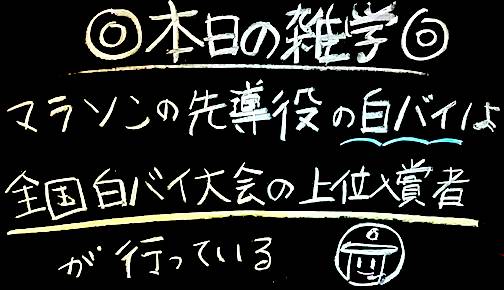 ◎本日の雑学◎
マラソンの先導役の白バイは
全国白バイ大会の上位入賞者
が行っている